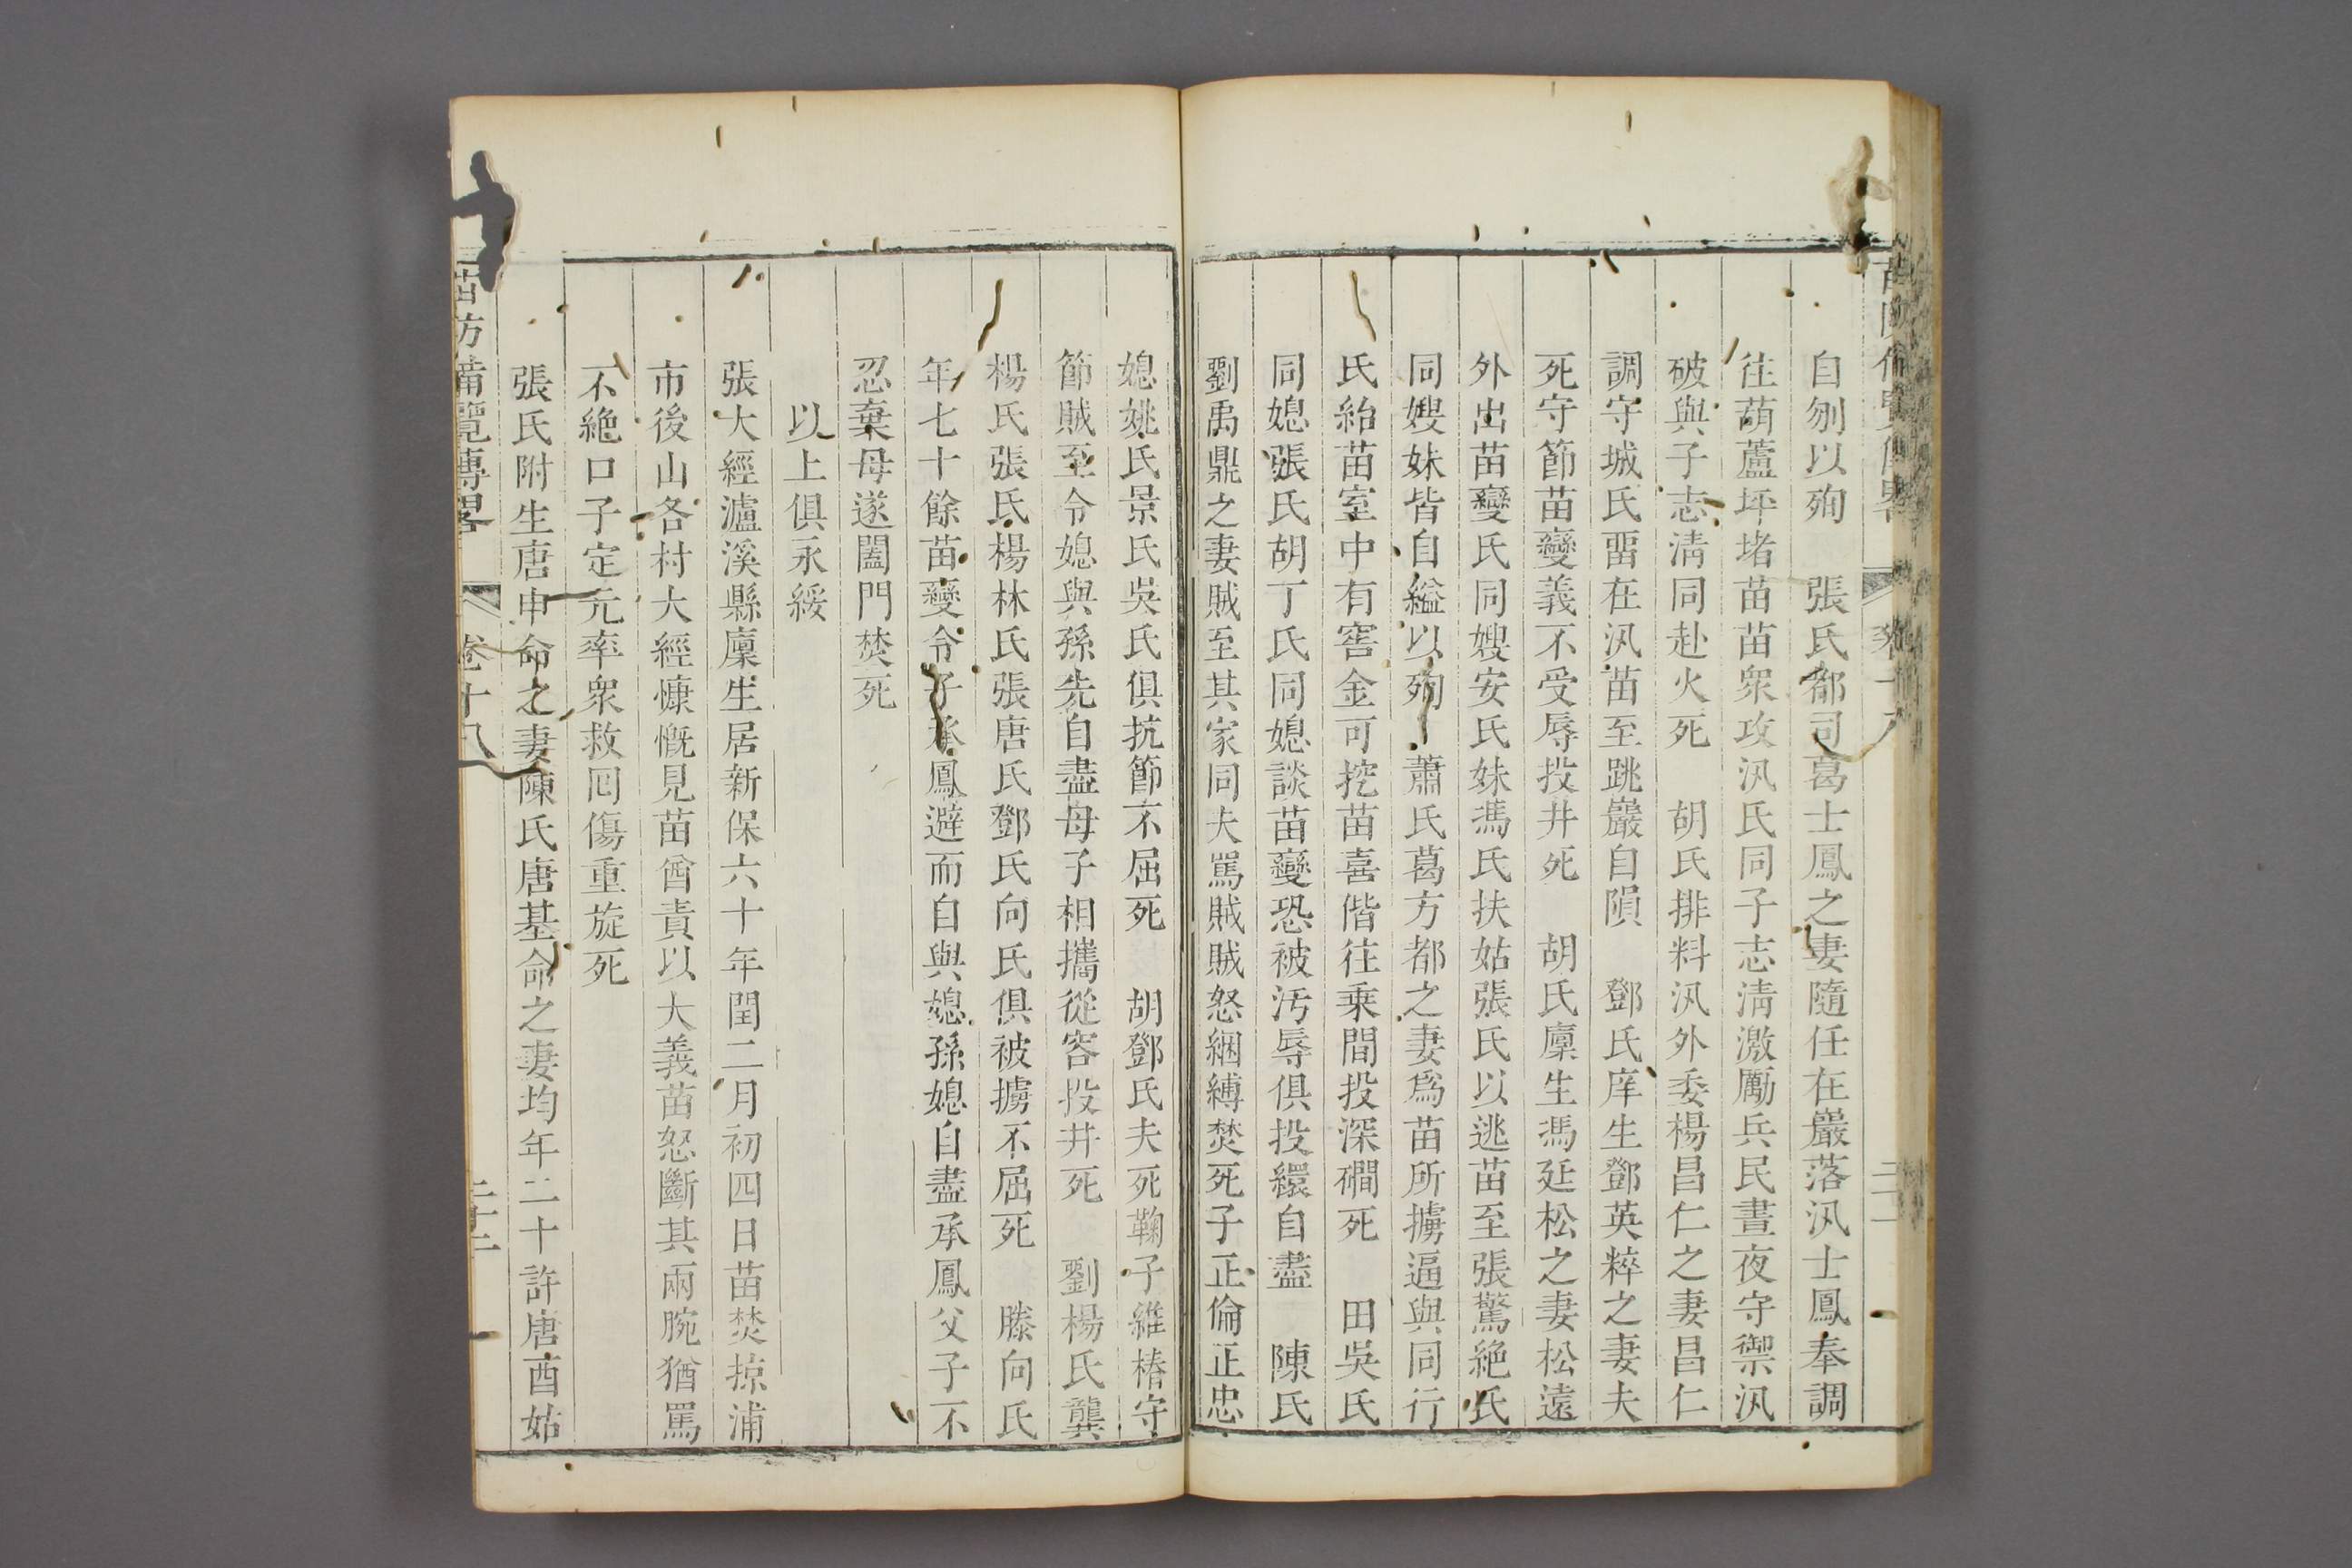 自刎以殉　張氏都司葛士鳳之妻隨任在巖落汛士鳳奉調
往葫蘆坪堵苗苗衆攻汛氏同子志淸激厲兵民晝夜守禦汛
破與子志淸同赴火死　胡氏排料汛外委楊昌仁之妻昌仁
調守城氏畱在汛苗至跳巖自隕　鄧氏庠生鄧英粹之妻夫
死守節苗變義不受辱投井死　胡氏廩生馮延松之妻松遠
外出苗變氏同嫂安氏妹馮氏扶姑張氏以逃苗至張驚絶氏
同嫂妹皆自縊以殉　蕭氏葛方都之妻爲苗所擄逼與同行
氏紿苗室中有窖金可挖苗喜偕往乗間投深磵死　田吳氏
同媳張氏胡丁氏同媳談苗變恐被汚辱俱投繯自盡　陳氏
劉禹鼎之妻賊至其家同夫罵賊賊怒綑縛焚死子正倫正忠
媳姚氏景氏吳氏俱抗節不屈死　胡鄧氏夫死鞠子維椿守
節賊至令媳與孫先自盡母子相攜從容投井死　劉楊氏龔
楊氏張氏楊林氏張唐氏鄧氏向氏俱被擄不屈死　滕向氏
年七十餘苗變令子承鳳避而自與媳孫媳自盡承鳳父子不
忍棄母遂闔門焚死
以上俱永綏
張大經瀘溪縣廩生居新保六十年閏二月初四日苗焚掠浦
市後山各村大經慷慨見苗酋責以大義苗怒斷其兩腕猶罵
不絶口子定元率衆救囘傷重旋死
張氏附生唐申命之妻陳氏唐基命之妻均年二十許唐酉姑
苗防備覽傳畧　卷十八